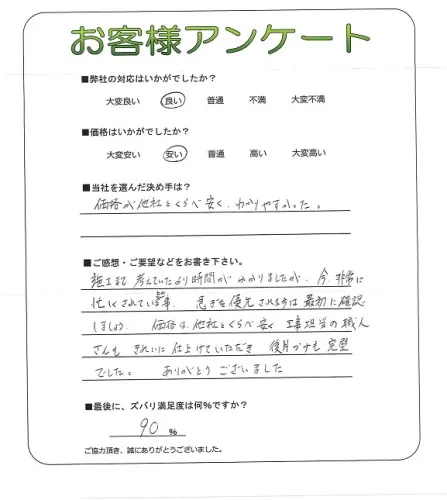 お客様アンケート
■弊社の対応はいかがでしたか？
大変良い　良い　普通　不満　大変不満
■価格はいかがでしたか？
大変安い　安い　普通　高い　大変高い
■当社を選んだ決め手は？
価格が他社とくらべ安く、わかりやすかった。
■ご感想・ご要望などをお書き下さい。
施工まで考えていたより時間がかかりましたが、今、非常に
忙しくされている事　急ぎを優先される方は最初に確認
しましょう　価格は他社とくらべ安く 工事担当の職人
さんも きれいに仕上げていただき 後片づけも完璧
でした。　ありがとうございました
■最後に、ズバリ満足度は何％ですか？
90 ％
ご協力頂き、誠にありがとうございました。